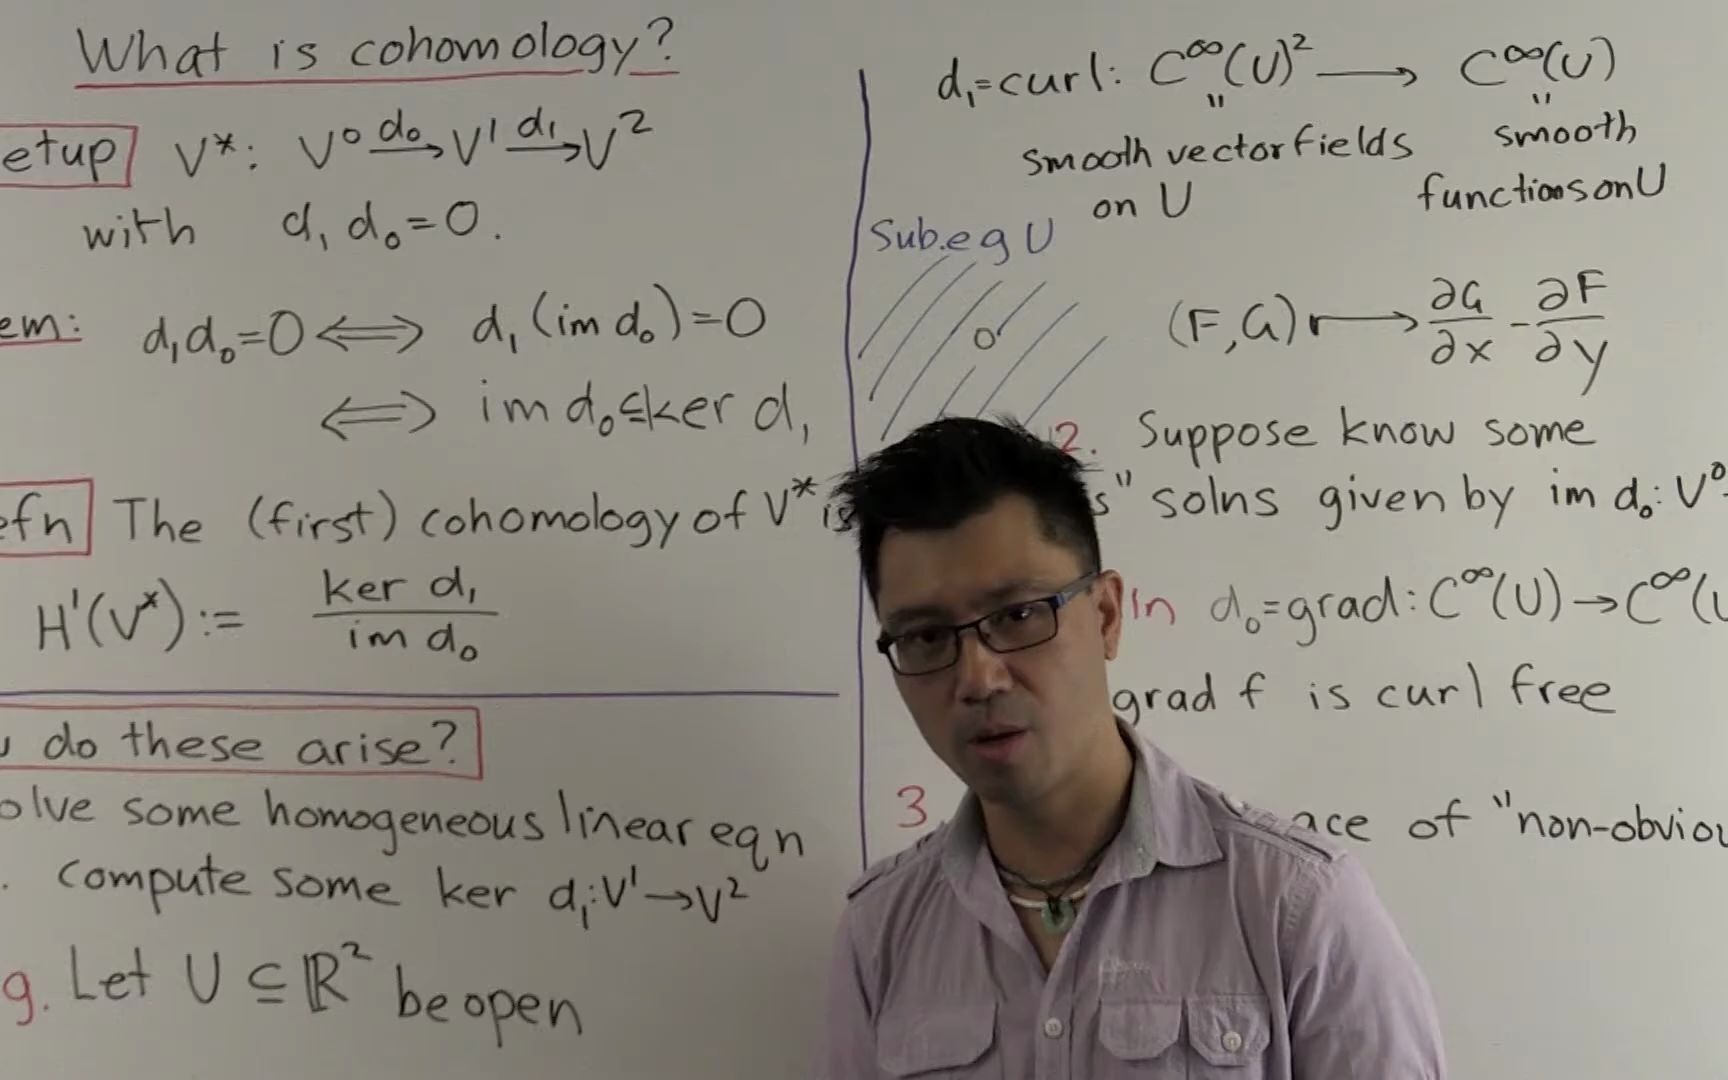 What is cohomology?
etup V*: V⁰ d₀→ V¹ d₁→ V²
with d₁ d₀ = 0.
em: d₁d₀ = 0 ⟺ d₁(im d₀) = 0
⟺ im d₀ ⊆ ker d₁
efn The (first) cohomology of V* is
H¹(V*) := ker d₁ / im d₀
do these arise?
olve some homogeneous linear eqn
. Compute some ker d₁: V¹ → V²
g. Let U ⊆ ℝ² be open
d₁ = curl: C^∞(U)² ⟶ C^∞(U)
" "
smooth vector fields smooth
on U functions on U
Sub. eg U
0
(F, G) ⟼ ∂G/∂x - ∂F/∂y
2. Suppose know some
s" solns given by im d₀: V⁰
In d₀ = grad: C^∞(U) → C^∞(U
grad f is curl free
3. ace of "non-obviou